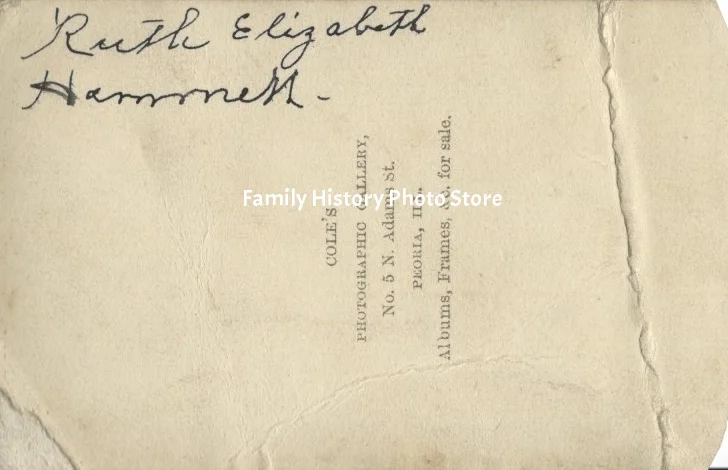 Ruth Elizabeth
Hammett -
COLE'S
PHOTOGRAPHIC GALLERY,
No. 5 N. Adams St.
PEORIA, ILL.
Albums, Frames, &c. for sale.
Family History Photo Store